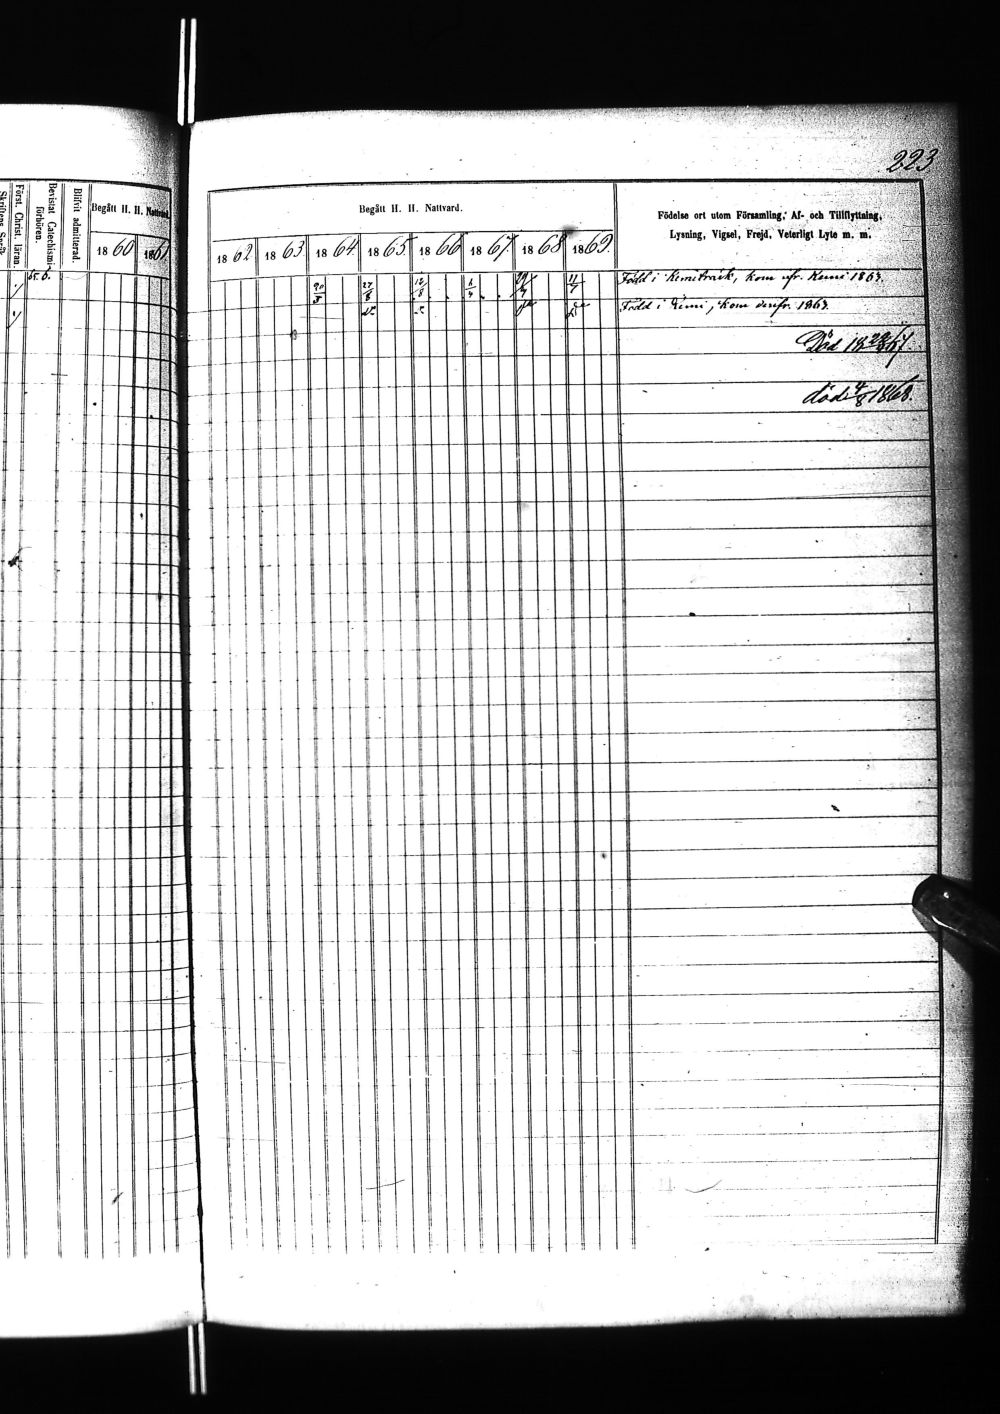 223
Skriftens Språk.
Först. Christ. läran.
Bevistat Catechismi-förhören.
Blifvit admitterad.
Begått H. H. Nattvard.
1860 1861
Begått H. H. Nattvard.
1862 1863 1864 1865 1866 1867 1868 1869
Födelse ort utom Församling, Af- och Tillflyttning,
Lysning, Vigsel, Frejd, Veterligt Lyte m. m.
65. 6.
27/8 12/8 11/7 Född i Kemiträsk, kom ifr. Kemi 1863.
Född i Kemi, kom derifr. 1863.
Död 18 67.
död 4/8 1868.